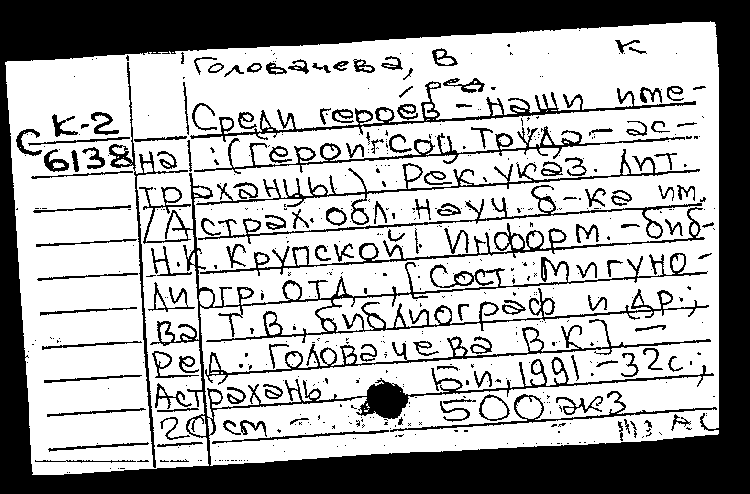 Головачева, В К
ред.
К-2 Среди героев - наши име-
С 6138 на : (Герои Соц. Труда - ас-
траханцы) : Рек. указ. лит.
/ Астрах. обл. науч. б-ка им.
Н.К. Крупской. Информ. - биб-
лиогр. отд. ; [Сост.: Мигуно-
ва Т.В., библиограф и др.;
Ред.: Головачева В.К.]. -
Астрахань: Б.и., 1991. - 32 с.;
20 см. - 500 экз